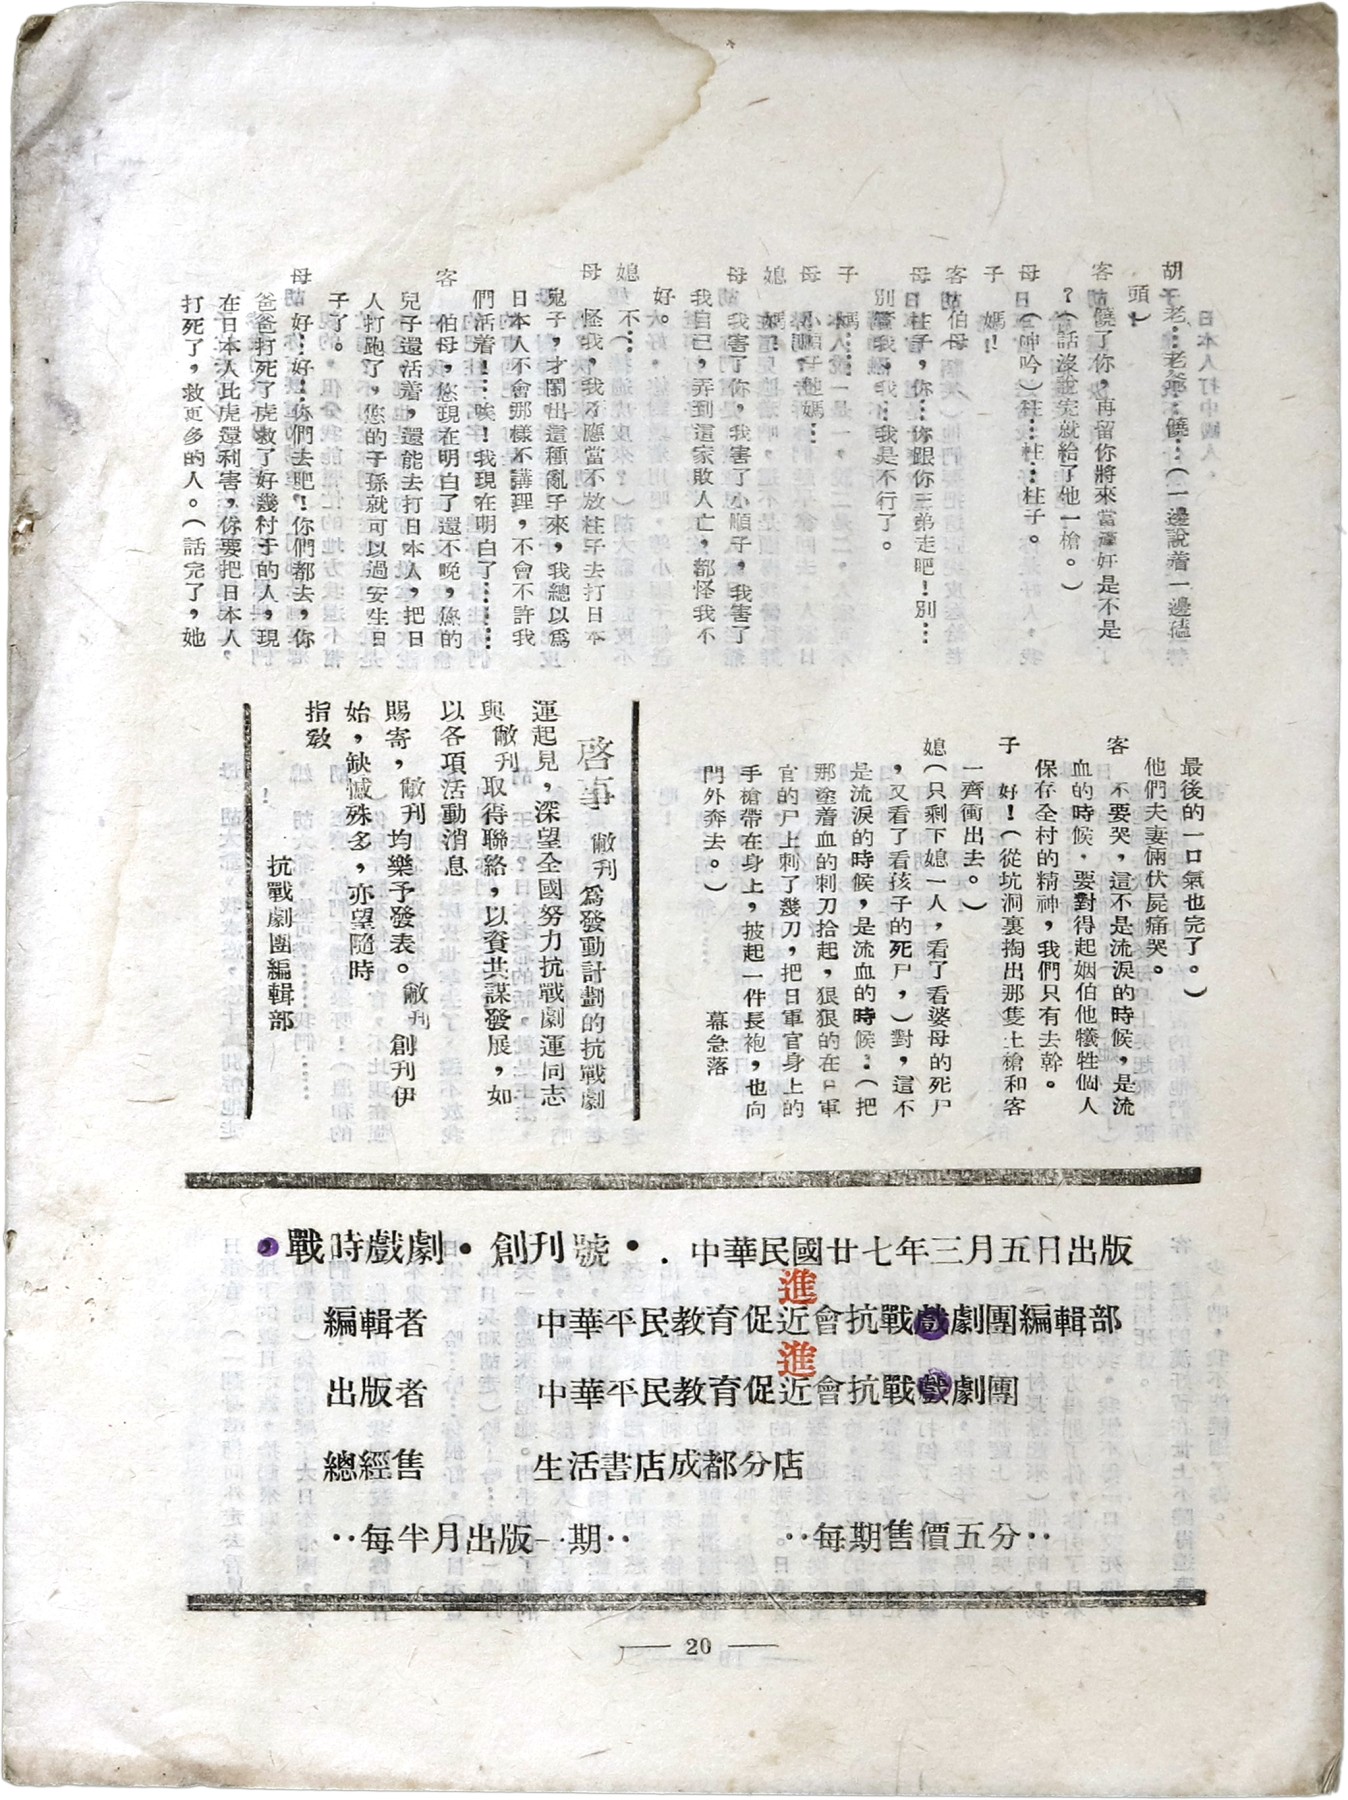 胡 老…老爺…饒…（一邊說着一邊磕
頭）
客 饒了你，再留你將來當漢奸是不是
？（話沒說完就給了他一槍。）
母 （呻吟）柱…柱…柱子。
子 媽！
客 伯母
母 柱子，你…你跟你三弟走吧！別…
別管我，我…我是不行了。
子 媽…
母 小順子他媽…
媳 媽！
母 我害了你，我害了小順子，我害了
我自已，弄到這家敗人亡，都怪我不
好。
媳 不…
母 怪我，我不應當不放柱子去打日本
鬼子，才閙出這種亂子來，我總以爲
日本人不會那樣不講理，不會不許我
們活着！…唉！我現在明白了………
客 伯母，您現在明白了還不晚，您的
兒子還活着，還能去打日本人，把日
人打跑了，您的子孫就可以過安生日
子了。
母 好…好！你們去吧！你們都去，你
爸爸打死了虎救了好幾村子的人，現
在日本人比虎還利害，你要把日本人
打死了，救更多的人。（話完了，她
最後的一口氣也完了。）
他們夫妻倆伏屍痛哭。
客 不要哭，這不是流淚的時候，是流
血的時候，要對得起姻伯他犧牲個人
保存全村的精神，我們只有去幹。
子 好！（從坑洞裏掏出那隻土槍和客
一齊衝出去。）
媳（只剩下媳一人，看了看婆母的死尸
，又看了看孩子的死尸，）對，這不
是流淚的時候，是流血的時候…（把
那塗着血的刺刀拾起，狠狠的在日軍
官的尸上刺了幾刀，把日軍官身上的
手槍帶在身上，披起一件長袍，也向
門外奔去。）
幕急落
啓事 敝刊爲發動計劃的抗戰劇
運起見，深望全國努力抗戰劇運同志
與敝刊取得聯絡，以資共謀發展，如
以各項活動消息
賜寄，敝刊均樂予發表。敝刊創刊伊
始，缺憾殊多，亦望隨時
指教
！
抗戰劇團編輯部
•戰時戲劇•創刊號•．中華民國廿七年三月五日出版
進
編輯者 中華平民教育促近會抗戰戲劇團編輯部
進
出版者 中華平民教育促近會抗戰戲劇團
總經售 生活書店成都分店
‥每半月出版一期‥ ‥每期售價五分‥
— 20 —